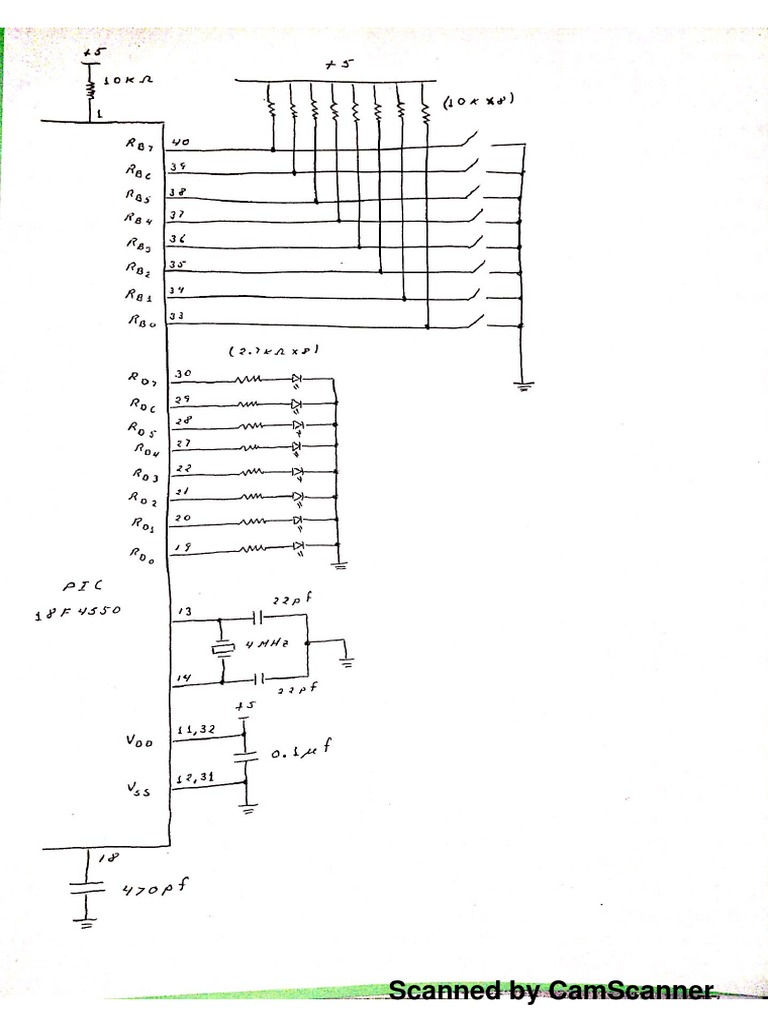 +5
10KΩ
1
+5
(10K x8)
RB7 40
RB6 39
RB5 38
RB4 37
RB3 36
RB2 35
RB1 34
RB0 33
(2.7KΩ x8)
RD7 30
RD6 29
RD5 28
RD4 27
RD3 22
RD2 21
RD1 20
RD0 19
PIC
18F4550
13
22pf
4MHz
14
22pf
+5
VDD 11,32
0.1μf
VSS 12,31
18
470pf
Scanned by CamScanner